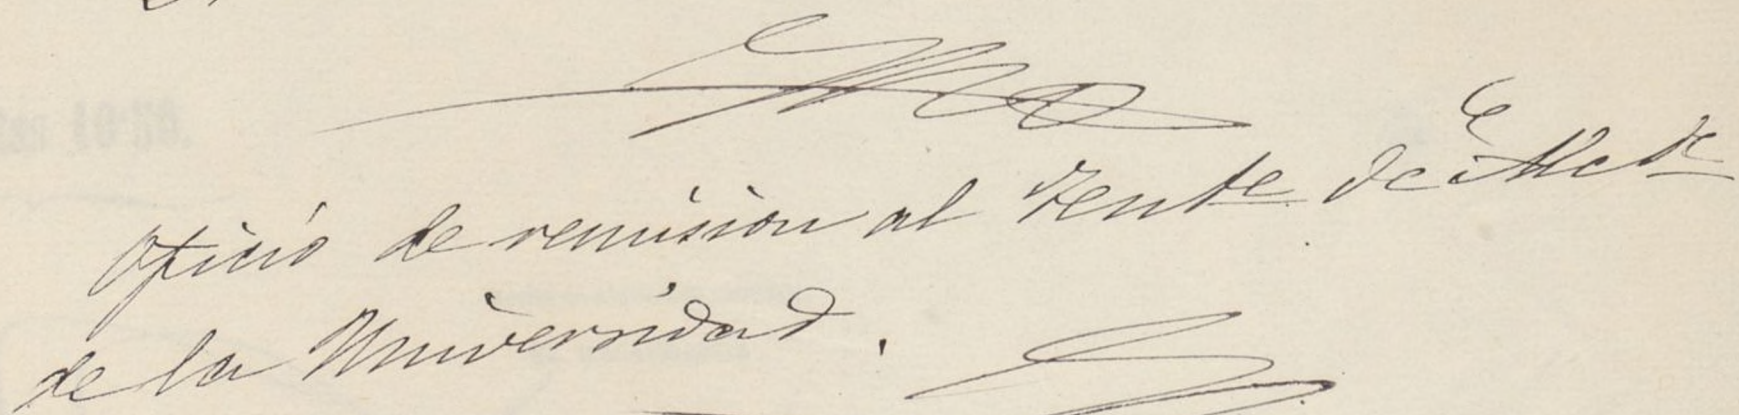 Oficio de remision al Tente de Alcde
de la Universidad.